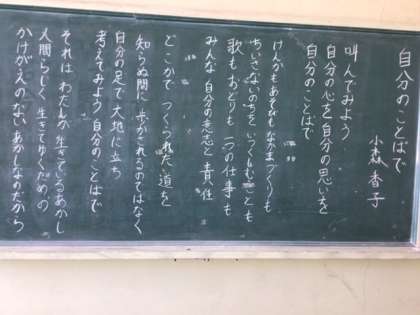 自分のことばで
小森 香子
叫んでみよう
自分の心を 自分の思いを
自分のことばで
けんかもあそびもなかまづくりも
ちいさないのちをいつくしむことも
歌もおどりも 一つの仕事も
みんな 自分の意志と責任
どこかで つくられた 道を
知らぬ間に 歩かされるのではなく
自分の足で 大地に立ち
考えてみよう 自分のことばで
それは わたしが 生きているあかし
人間らしく 生きてゆくための
かけがえのない あかしなのだから